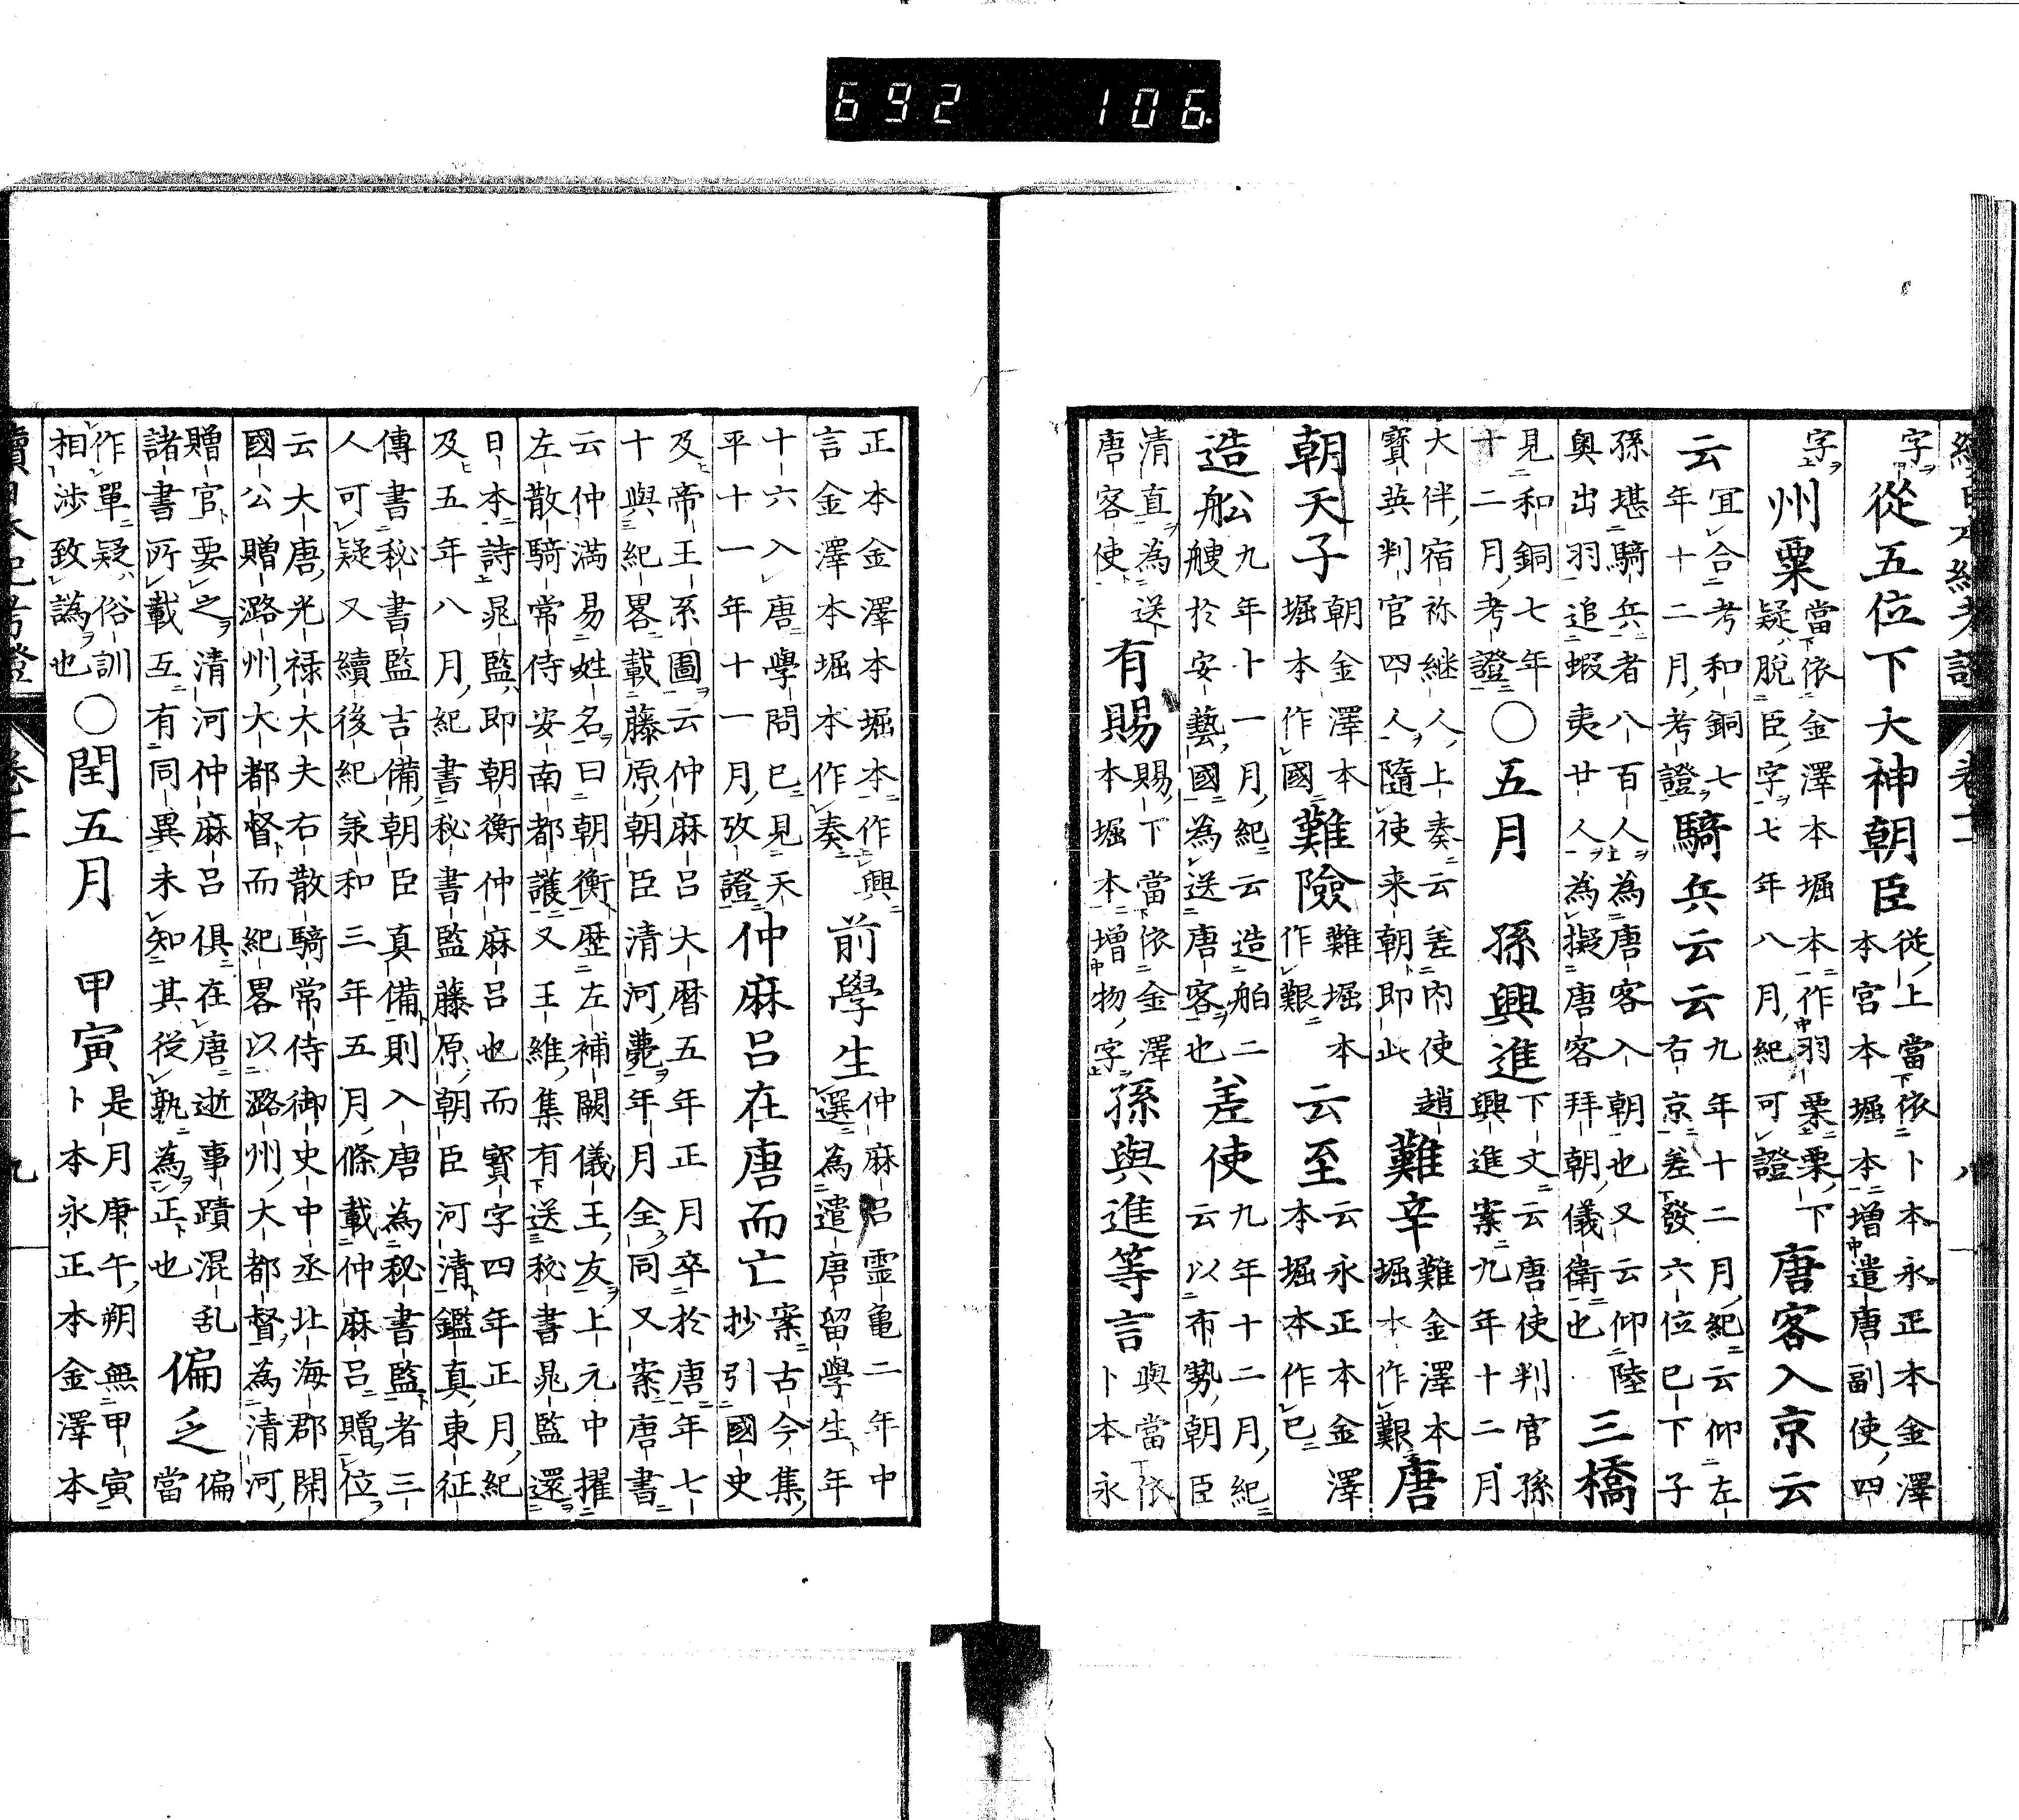 692 106
字從五位下大神朝臣從上當依卜本永正本金澤本宮本堀本增遣唐副使四
字州粟當依金澤本堀本作羽粟粟下疑脫臣字七年八月紀可證唐客入京云
云宜合考和銅七年十二月考證騎兵云云九年十二月紀云仰左右京差發六位已下子
孫堪騎兵者八百人為唐客入朝也又云仰陸奧出羽追蝦夷廿人為擬唐客拜朝儀衛也三橋
見和銅七年十二月考證○五月 孫興進下文云唐使判官孫興進案九年十二月
大伴宿祢継人上奏云差内使趙寳英判官四人隨使来朝即此難辛難金澤本堀本作艱唐
朝天子朝金澤本堀本作國難險難堀本作艱云至云永正本金澤本堀本作已
造舩九年十一月紀云造舶二艘於安藝國為送唐客也差使九年十二月紀云以布勢朝臣
清直為送唐客使有賜賜下當依金澤本堀本增物字孫與進等言與當依卜本永
正本金澤本堀本作興言金澤本堀本作奏前學生仲麻呂霊亀二年中選為遣唐留學生年
十六入唐學問已見天平十一年十一月攷證仲麻呂在唐而亡案古今集抄引國史
及帝王系圖云仲麻呂大暦五年正月卒於唐年七十與紀畧載藤原朝臣清河薨年月全同又案唐書
云仲満易姓名曰朝衡歴左補闕儀王友上元中擢左散騎常侍安南都護又王維集有送秘書晁監還
日本詩晁監即朝衡仲麻呂也而寳字四年正月紀及五年八月紀書秘書監藤原朝臣河清鑑真東征
傳書秘書監吉備朝臣真備則入唐為秘書監者三人可疑又續後紀羕和三年五月條載仲麻呂贈位
云大唐光禄大夫右散騎常侍御史中丞北海郡開國公贈潞州大都督而紀畧以潞州大都督為清河
贈官要之清河仲麻呂俱在唐逝事蹟混乱諸書所載互有同異未知其從孰為正也偏乏偏當
作單疑俗訓相涉致譌也○閏五月 甲寅是月庚午朔無甲寅卜本永正本金澤本